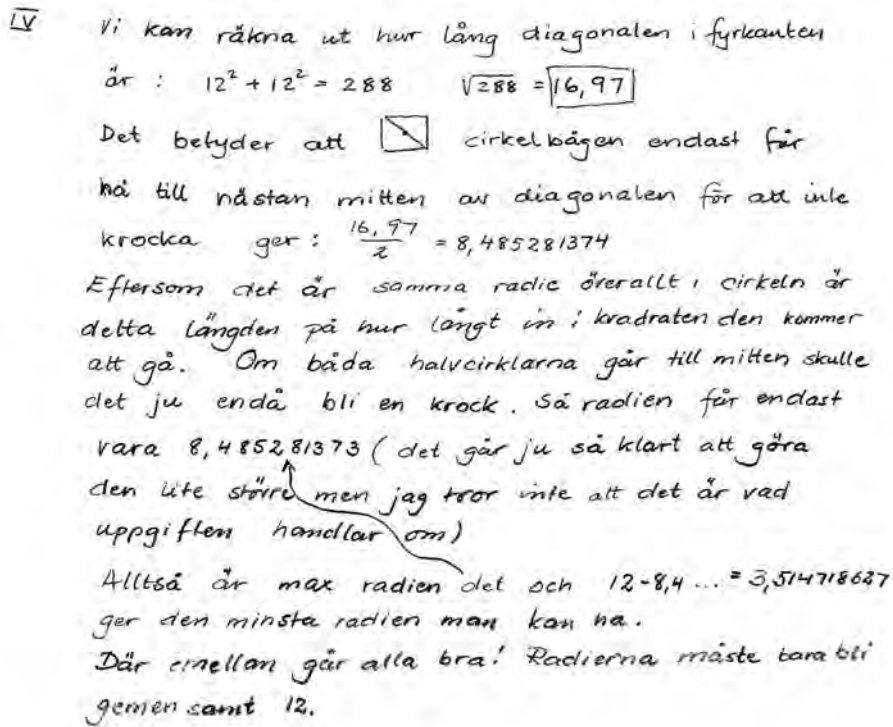 IV Vi kan räkna ut hur lång diagonalen i fyrkanten
är : 12² + 12² = 288 √288 = 16,97
Det betyder att cirkelbågen endast får
nå till nästan mitten av diagonalen för att inte
krocka ger : 16,97/2 = 8,485281374
Eftersom det är samma radie överallt i cirkeln är
detta längden på hur långt in i kvadraten den kommer
att gå. Om båda halvcirklarna går till mitten skulle
det ju endå bli en krock. Så radien får endast
vara 8,485281373 ( det går ju så klart att göra
den lite större men jag tror inte att det är vad
uppgiften handlar om)
Alltså är max radien det och 12-8,4 ... = 3,514718627
ger den minsta radien man kan ha.
Där emellan går alla bra! Radierna måste bara bli
gemen samt 12.